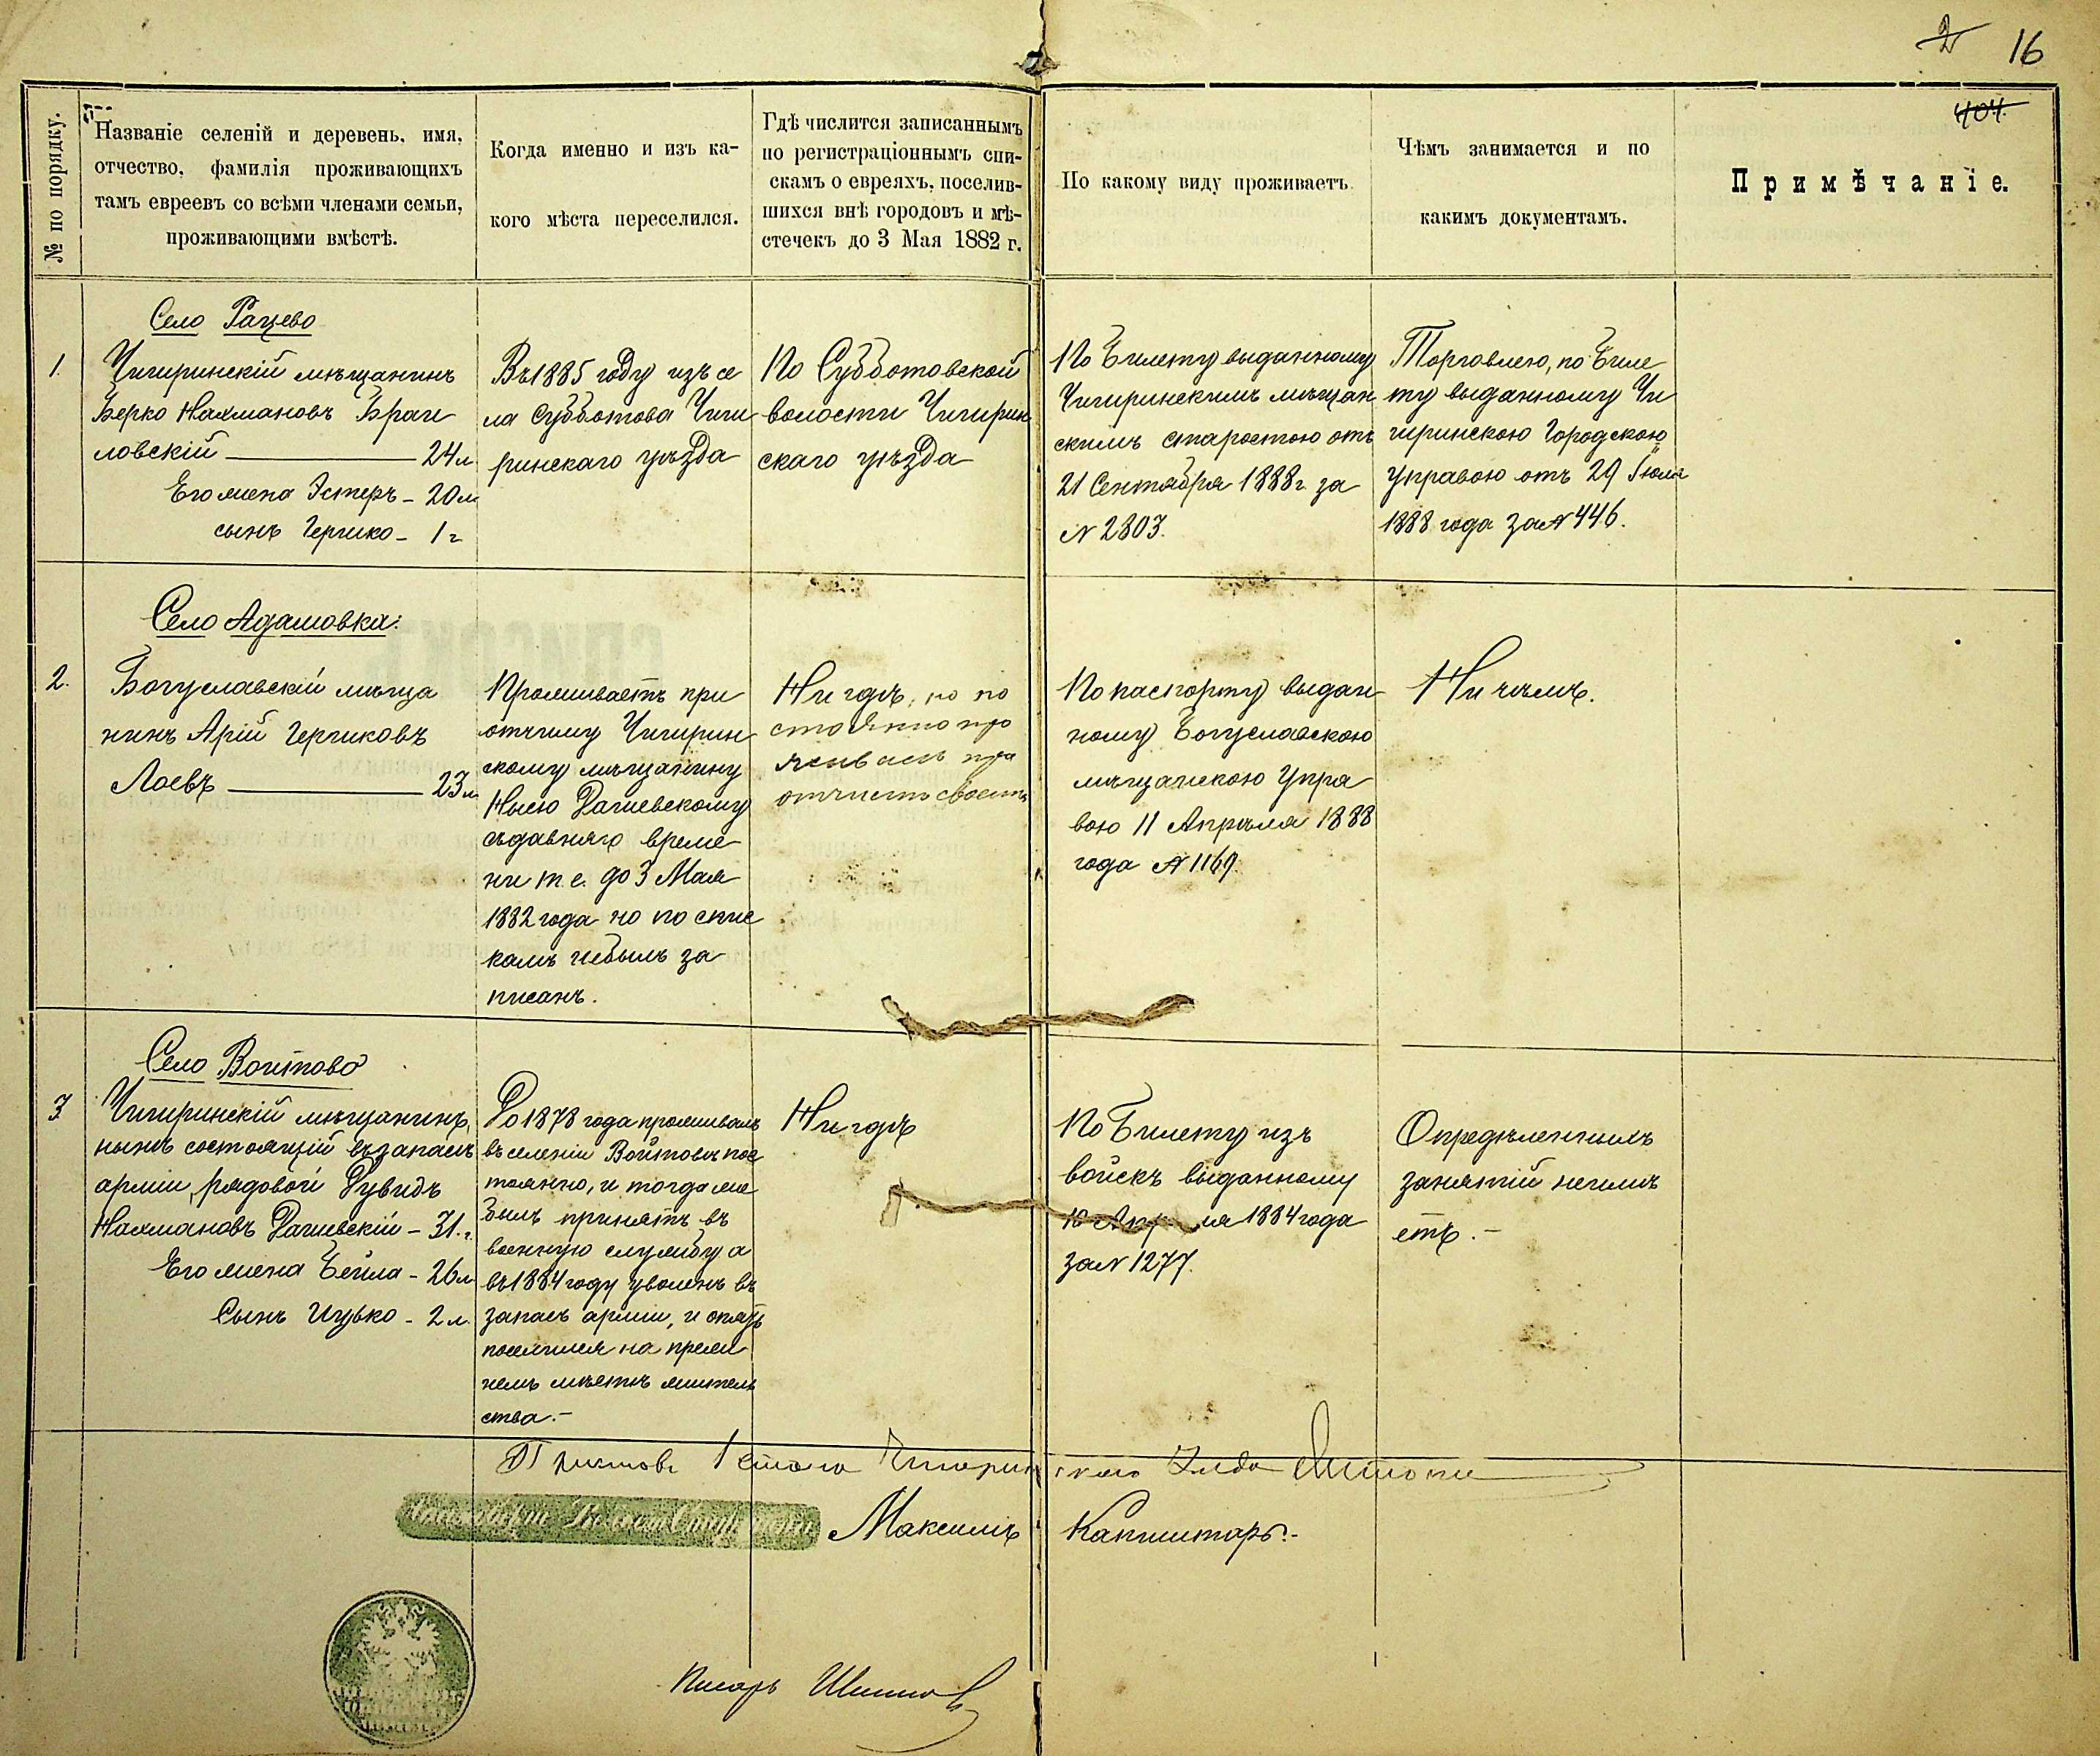 2 16
404.
№ по порядку.
Названіе селеній и деревень, имя,
отчество, фамилія проживающихъ
тамъ евреевъ со всѣми членами семьи,
проживающими вмѣстѣ.
Когда именно и изъ ка-
кого мѣста переселился.
Гдѣ числится записаннымъ
по регистраціоннымъ спи-
скамъ о евреяхъ, поселив-
шихся внѣ городовъ и мѣ-
стечекъ до 3 Мая 1882 г.
По какому виду проживаетъ.
Чѣмъ занимается и по
какимъ документамъ.
Примѣчаніе.
Село Рацево
1.
Чигиринскій мѣщанинъ
Берко Нахмановъ Браги
ловскій — 24 л
Его жена Эстеръ - 20 л
сынъ Гершко - 1 г
Въ 1885 году изъ се
ла Субботова Чиги
ринскаго уѣзда
По Субботовской
волости Чигирин
скаго уѣзда
По Билету выданному
Чигиринскимъ мѣщан
скимъ старостою отъ
21 Сентября 1888 г. за
№ 2803.
Торговлею, по Биле
ту выданному Чи
гиринскою Городскою
Управою отъ 29 Іюля
1888 года за № 446.
Село Адамовка.
2.
Богуславскій мѣща
нинъ Арій Гершковъ
Лоевъ — 23 л
Проживаетъ при
отчиму Чигирин
скому мѣщанину
Дашевскому
съ давняго време
ни т. е. до 3 Мая
1882 года но по спис
камъ небылъ за
писанъ.
Нигдѣ, но по
стоянно про
живаетъ при
отчиму своемъ
По паспорту выдан
ному Богуславскою
мѣщанскою Упра
вою 11 Апрѣля 1888
года № 1169.
Ничѣмъ.
Село Войтово
3
Чигиринскій мѣщанинъ,
нынѣ состоящій въ запасѣ
арміи, рядовой Дувидъ
Нахмановъ Дашевскій - 31 г.
Его жена Бейла - 26 л
Сынъ Ицько - 2 л.
До 1878 года проживалъ
въ селеніи Войтовѣ пос
тоянно, и тогда же
былъ принятъ въ
военную службу а
въ 1884 году уволенъ въ
запасъ арміи, и опять
поселился на преж
немъ мѣстѣ житель
ства.-
Нигдѣ
По Билету изъ
войскъ выданному
10 Апрѣля 1884 года
за № 1277.
Опредѣленныхъ
занятій неимѣ
етъ.-
Приставъ 1 стана Чигиринскаго Уѣзда
Максимъ Капшитарь.-
Писарь